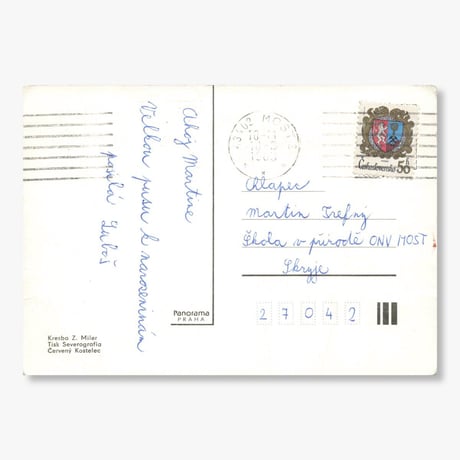 Ahoj Martine
Velkou pusu k narozeninám
posílá Luboš
Panorama
PRAHA
Kresba Z. Miler
Tisk Severografia
Červený Kostelec
MOST
Československo 50
Chlapec
Martin Trefný
Škola v přírodě ONV MOST
Skryje
27042